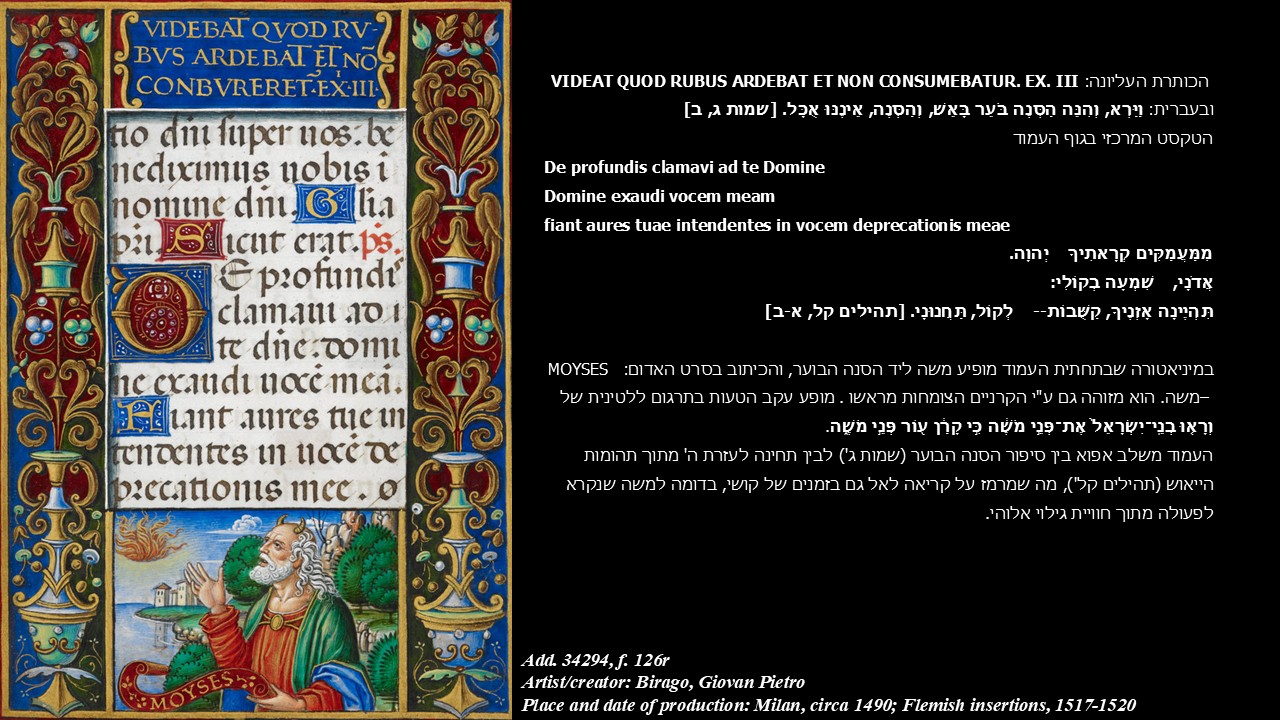 VIDEBAT QVOD RV-
BVS ARDEBAT ET NŌ
CONBVRERET. EX. III.
tio dñi super uos. be
nediximus uobis i
nomine dñi. Glia
pri. Sicut erat. ps.
De profundis
clamaui ad i
te dñe. domi
ne exaudi uocē meā.
Fiant aures tue in
tendentes in uocē de
precationis mee. O
MOYSES
הכותרת העליונה: VIDEAT QUOD RUBUS ARDEBAT ET NON CONSUMEBATUR. EX. III
ובעברית: וַיַּרְא, וְהִנֵּה הַסְּנֶה בֹּעֵר בָּאֵשׁ, וְהַסְּנֶה, אֵינֶנּוּ אֻכָּל. [שמות ג, ב]
הטקסט המרכזי בגוף העמוד
De profundis clamavi ad te Domine
Domine exaudi vocem meam
fiant aures tuae intendentes in vocem deprecationis meae
מִמַּעֲמַקִּים קְרָאתִיךָ יְהוָה.
אֲדֹנָי, שִׁמְעָה בְקוֹלִי:
תִּהְיֶינָה אָזְנֶיךָ, קַשֻּׁבוֹת-- לְקוֹל, תַּחֲנוּנָי. [תהילים קל, א-ב]
במיניאטורה שבתחתית העמוד מופיע משה ליד הסנה הבוער, והכיתוב בסרט האדום: MOYSES
–משה. הוא מזוהה גם ע"י הקרניים הצומחות מראשו . מופע עקב הטעות בתרגום ללטינית של
וְרָא֤וּ בְנֵֽי־יִשְׂרָאֵל֙ אֶת־פְּנֵ֣י מֹשֶׁ֔ה כִּ֣י קָרַ֔ן ע֖וֹר פְּנֵ֣י מֹשֶׁ֑ה.
העמוד משלב אפוא בין סיפור הסנה הבוער (שמות ג') לבין תחינה לעזרת ה' מתוך תהומות
הייאוש (תהילים קל"), מה שמרמז על קריאה לאל גם בזמנים של קושי, בדומה למשה שנקרא
לפעולה מתוך חוויית גילוי אלוהי.
Add. 34294, f. 126r
Artist/creator: Birago, Giovan Pietro
Place and date of production: Milan, circa 1490; Flemish insertions, 1517-1520